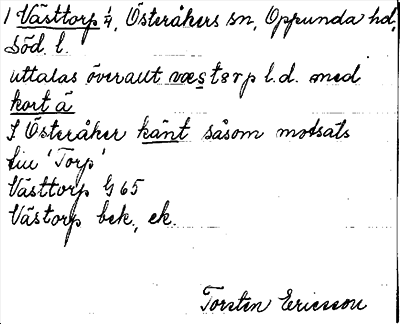 1 Västtorp 1/4, Österåkers sn, Oppunda hd,
Söd. l.
uttalas överallt væstərp l.d. med
kort ä
I Österåker känt såsom motsats
till 'Torp'
Västtorp G 65
Västorp bek., ek.
Torsten Ericsson